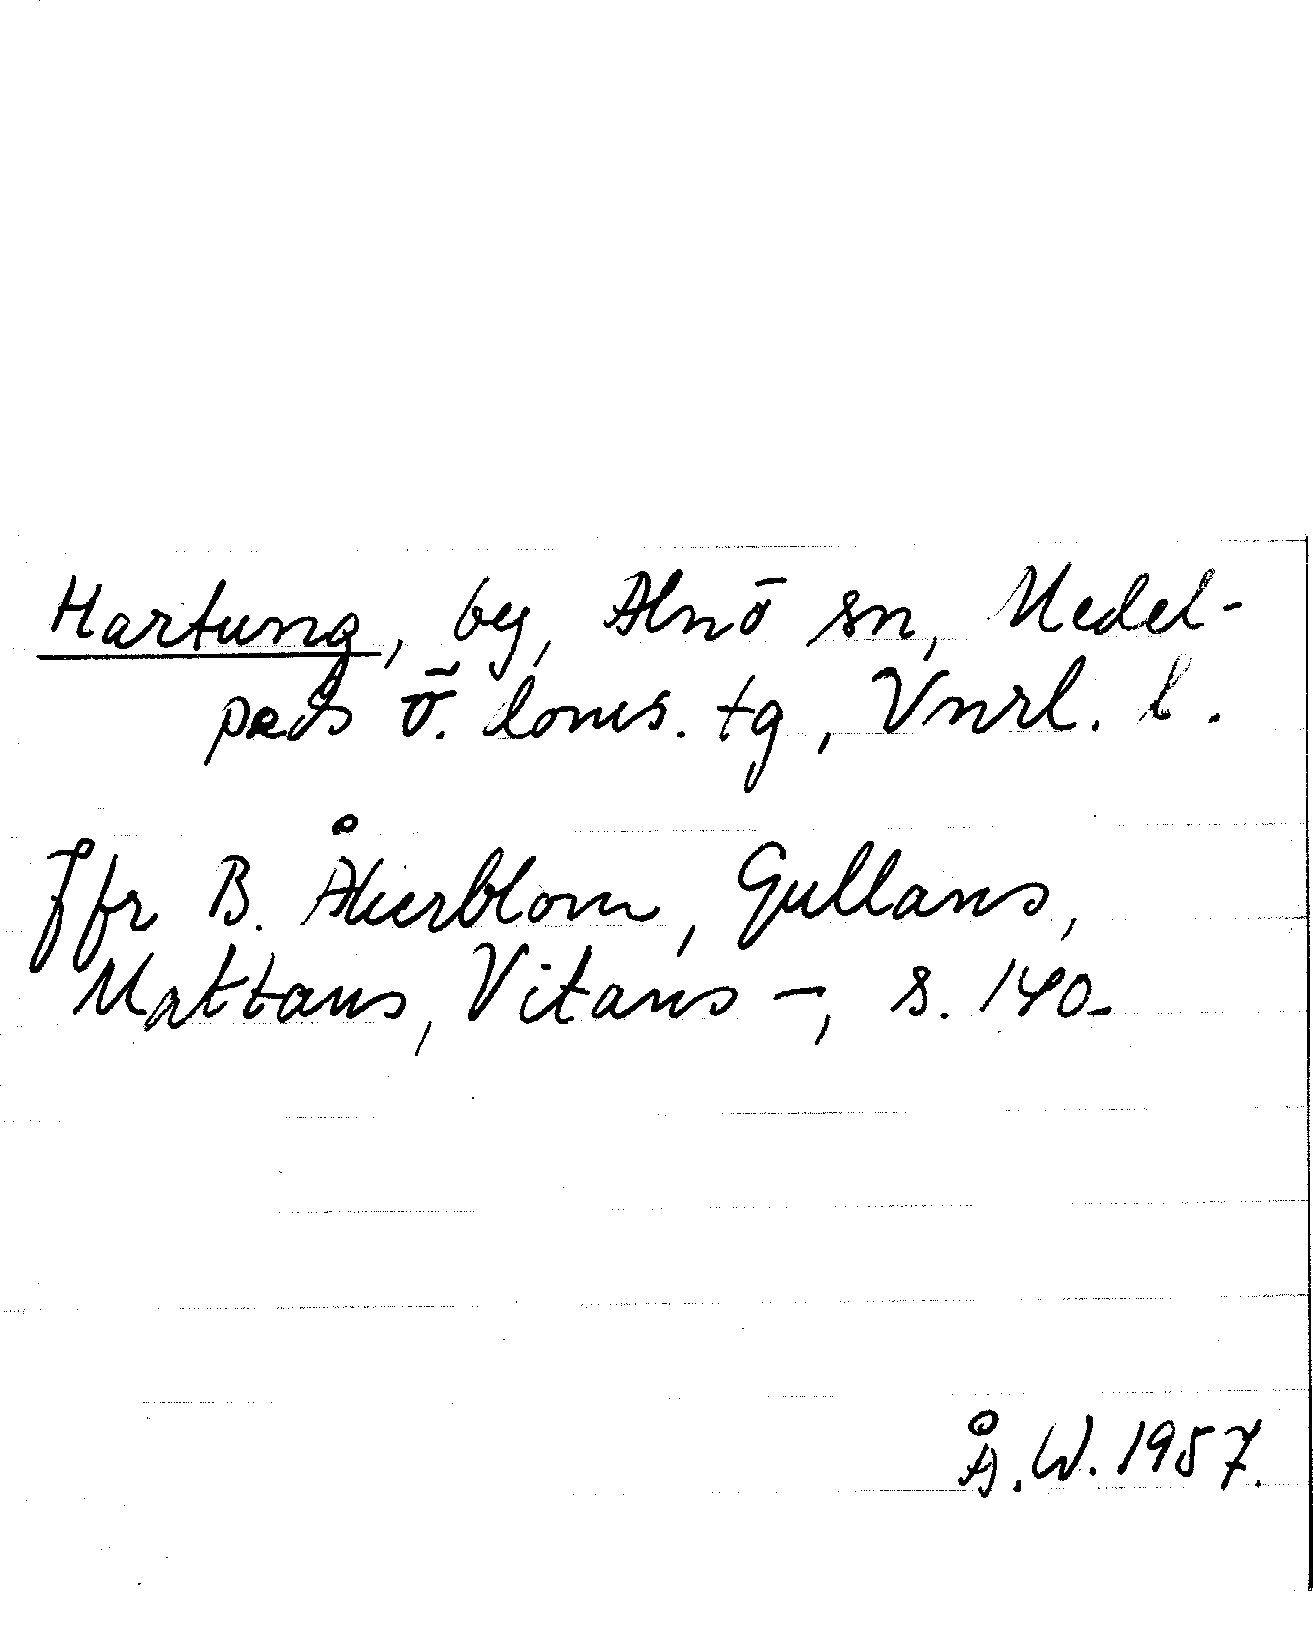 Hartung, by, Alnö sn, Medel-
pads ö. doms. tg, Vnrl. l.
Jfr B. Åkerblom, Gullans,
Mattans, Vitans –, s. 140.
Å. W. 1957.